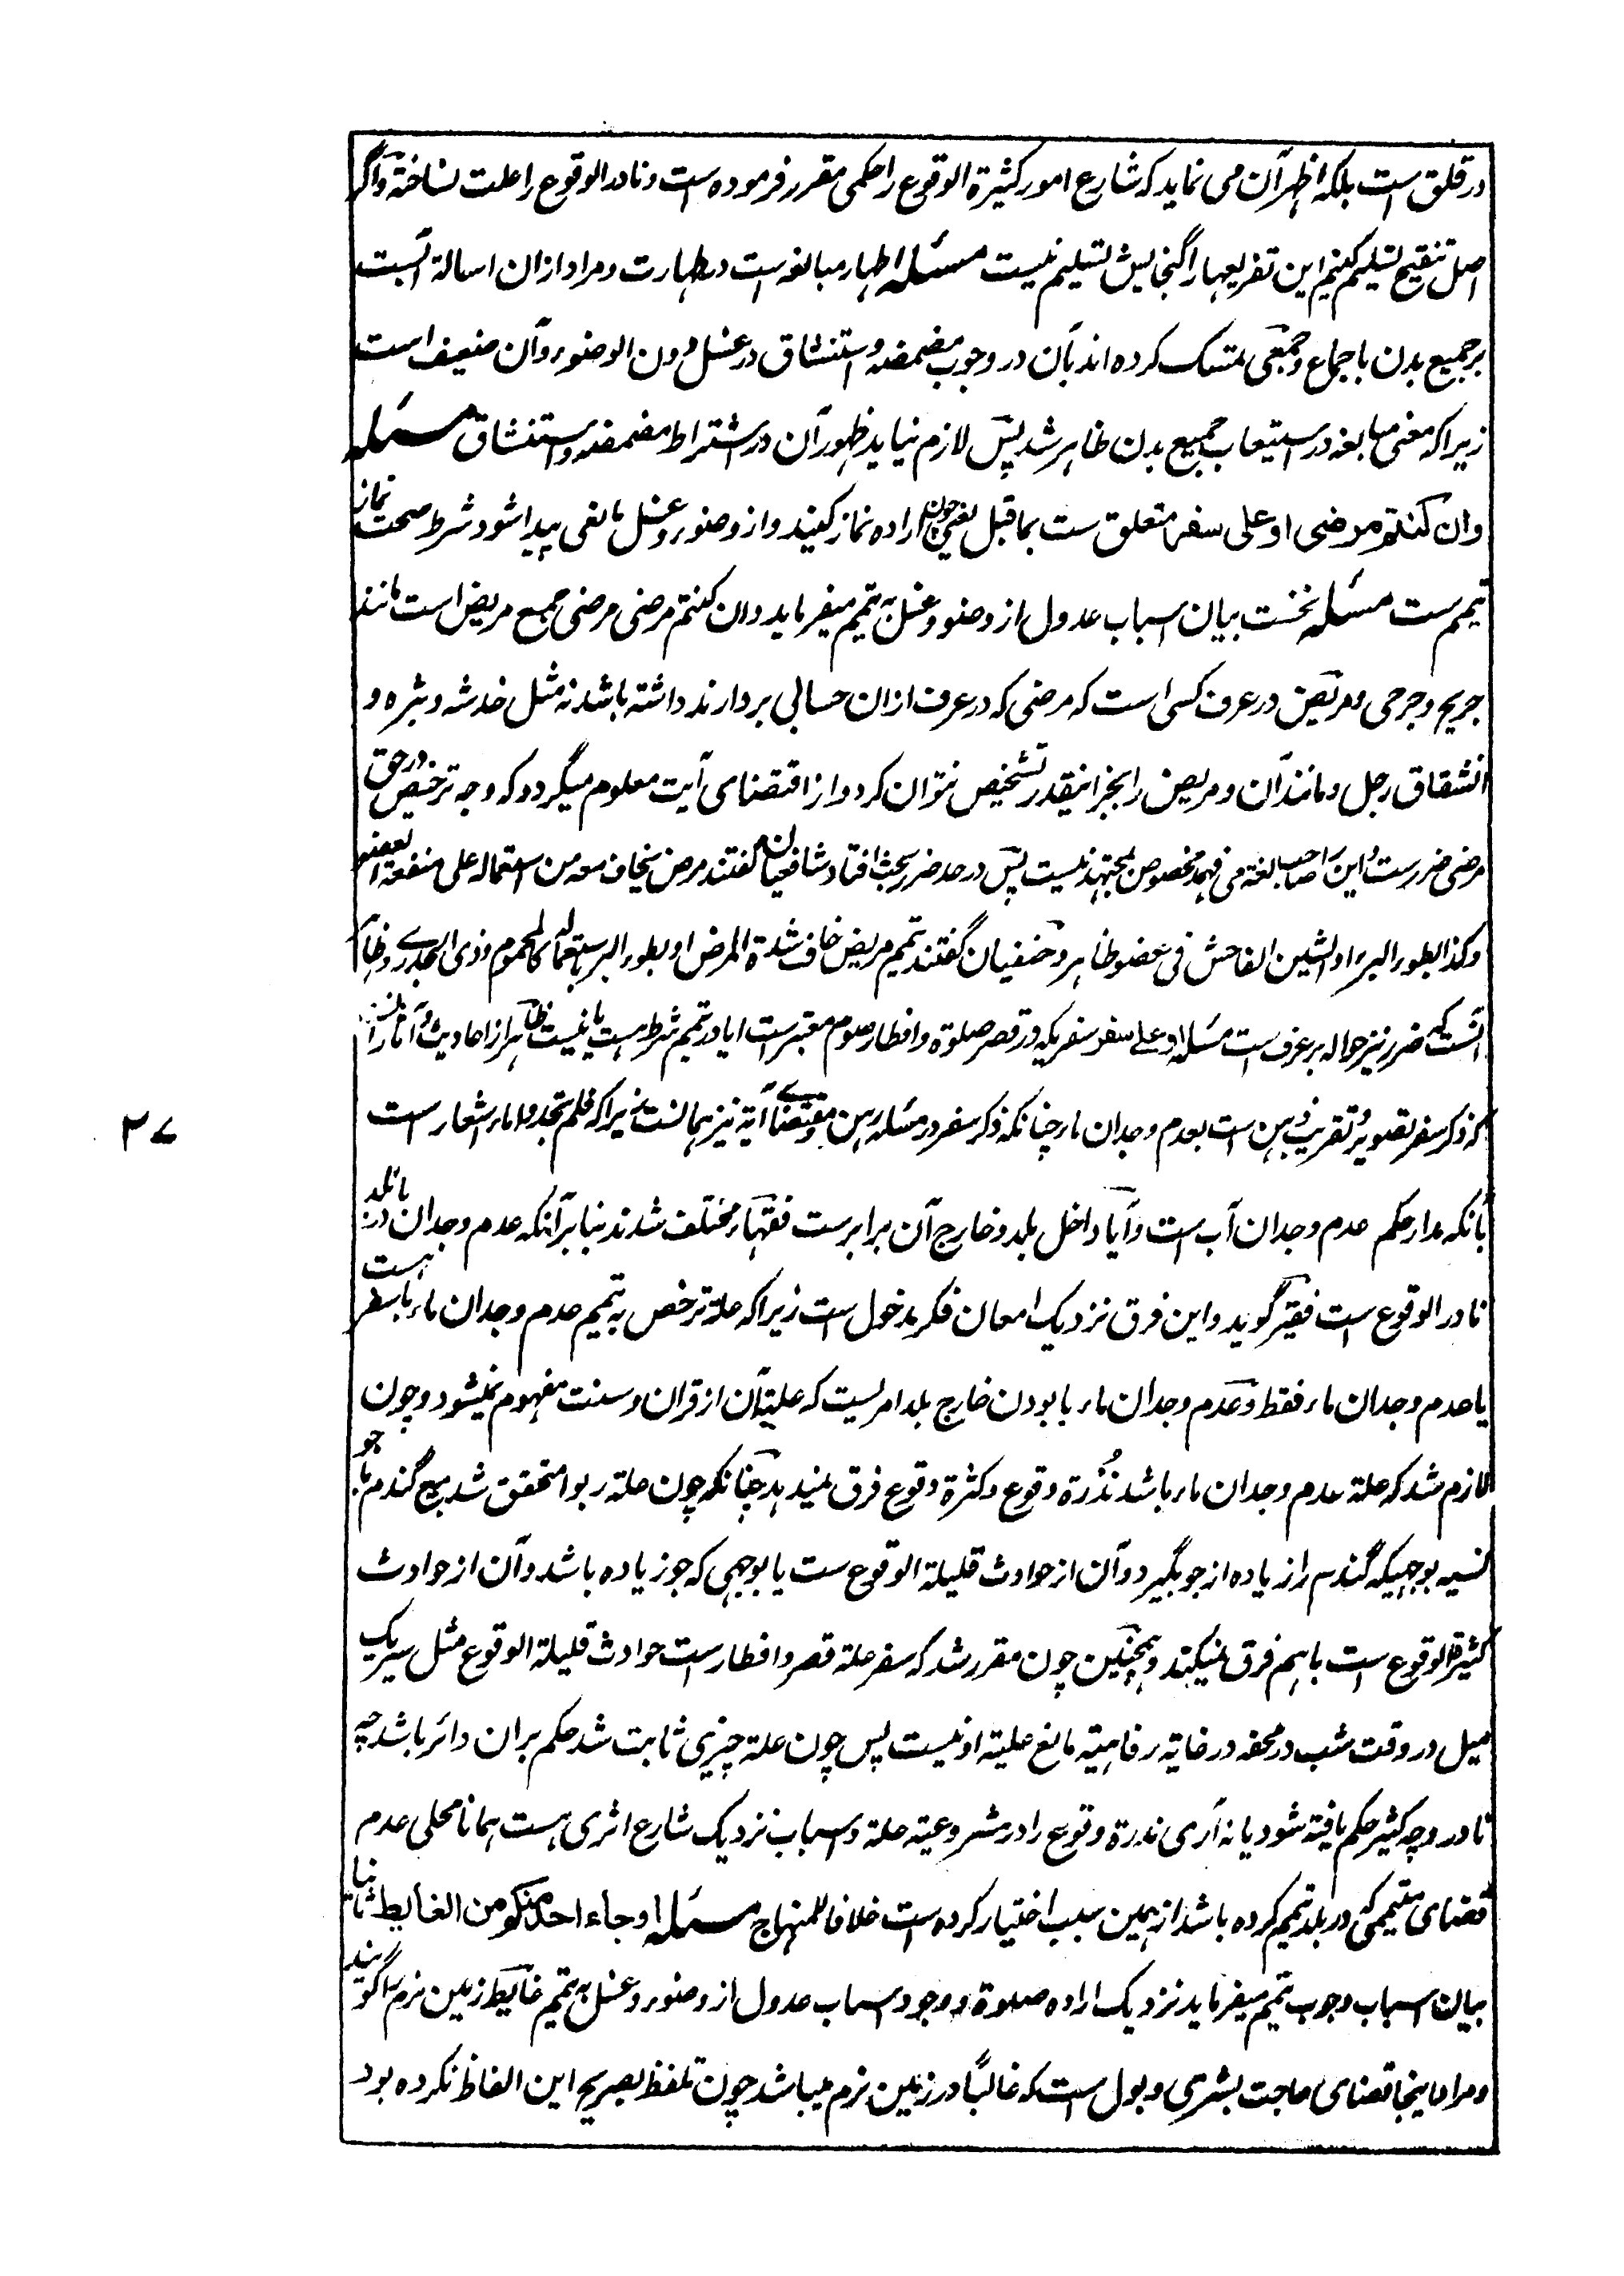 در قلق است بلکه اظهر آن می نماید که شارع امور کثیرة الوقوع را حکمی مقرر فرموده است و نادر الوقوع را علت نساخته و اگر
اصل تنقیح تسلیم کنیم این تفریعها را گنجایش تسلیم نیست مسئله اطهار مبالغه است در طهارت و مراد ازان اسالة آبست
بر جمیع بدن باجماع و جمعی تمسک کرده اند بآن در وجوب مضمضه و استنشاق در غسل دون الوضوء و آن ضعیف است
زیراکه معنی مبالغه در استیعاب جمیع بدن ظاهر شد پس لازم نیاید ظهور آن در اشتراط مضمضه و استنشاق مسئله
وان کنتم مرضی او علی سفر متعلق ست بماقبل یعنی چون اراده نماز کنید و از وضوء و غسل مانعی پیدا شود شرط صحت نماز
تیمم ست مسئله نخست بیان اسباب عدول از وضو و غسل به تیمم میفرماید وان کنتم مرضی مرضی جمع مریض است مانند
جریح و جرحی و مریض در عرف کسی است که مرضی که در عرف ازان حسابی بردارند داشته باشد نه مثل خدشه و بثره و
انشقاق رجل و مانند آن و مریض را بجز اینقدر تشخیص نتوان کرد و از اقتضای آیت معلوم میگردد که وجه ترخیص در حق
مرضی ضررست و این را صاحب لغة می فهمد مخصوص بمجتهد نیست پس در حد ضرر بحث افتاد شافعیان گفتند مرض یخاف معه من استعماله علی منفعة العضو
وکذا بطوء البرء او الشین الفاحش فی عضو ظاهر و حنفیان گفتند تیمم مریض خاف شدة المرض او بطوء البرء باستعماله کالمحموم و ذی الجدری و ظاهر
آنست که ضرر نیز حواله بر عرف است مسئله او علی سفر سفریکه در قصر صلوة و افطار صوم معتبرست ایا در تیمم شرط هست یا نیست ظاهر از احادیث و آثار
که ذکر سفر تصویر و تقریب ذهن است بعدم وجدان ماء چنانکه ذکر سفر در مسئله رهن و مقتضای آیة نیز همانست زیراکه فلم تجدوا ماء اشعار ست
بآنکه مدار حکم عدم وجدان آب ست و آیا داخل بلد و خارج آن برابرست فقهاء مختلف شدند بنا بر آنکه عدم وجدان در بلد
نادر الوقوع است فقیر گوید و این فرق نزدیک امعان فکر مدخول است زیراکه علة ترخص به تیمم عدم وجدان ماء با سفر هست
یا عدم وجدان ماء فقط و عدم وجدان ماء با بودن خارج بلد امریست که علیة آن از قران و سنت مفهوم نمیشود و چون
لازم شد که علة عدم وجدان ماء باشد نُدْرَة وقوع و کثرة وقوع فرق نمیدهد چنانکه چون علة ربوا متحقق شد بیع گندم با جو
نسیه بوجهیکه گندم را زیاده از جو بگیرد و آن از حوادث قلیلة الوقوع ست یا بوجهی که جو زیاده باشد و آن از حوادث
کثیرة الوقوع است باهم فرق نمیکند و همچنین چون مقرر شد که سفر علة قصر و افطارست حوادث قلیلة الوقوع مثل سیر یک
میل در وقت شب در محفه در غایة رفاهیة مانع علیة او نیست پس چون علة چیزی ثابت شد حکم بران دائر باشد چه
نادر و چه کثیر حکم یافته شود یا نه آری ندرة وقوع را در مشروعیة علة و اسباب نزدیک شارع اثری هست همانا محلی عدم
قضای متیممی که در بلد تیمم کرده باشد از همین سبب اختیار کرده ست خلافا للمنهاج مسئله او جاء احد منکم من الغایط ثانیا
بیان اسباب وجوب تیمم میفرماید نزدیک اراده صلوة و وجود اسباب عدول از وضوء و غسل به تیمم غایط زمین نرم را گویند
و مراد اینجا قضای حاجت بشری و بول است که غالباً در زمین نرم میباشد چون تلفظ بصریح این الفاظ نکرده بود
۲۷